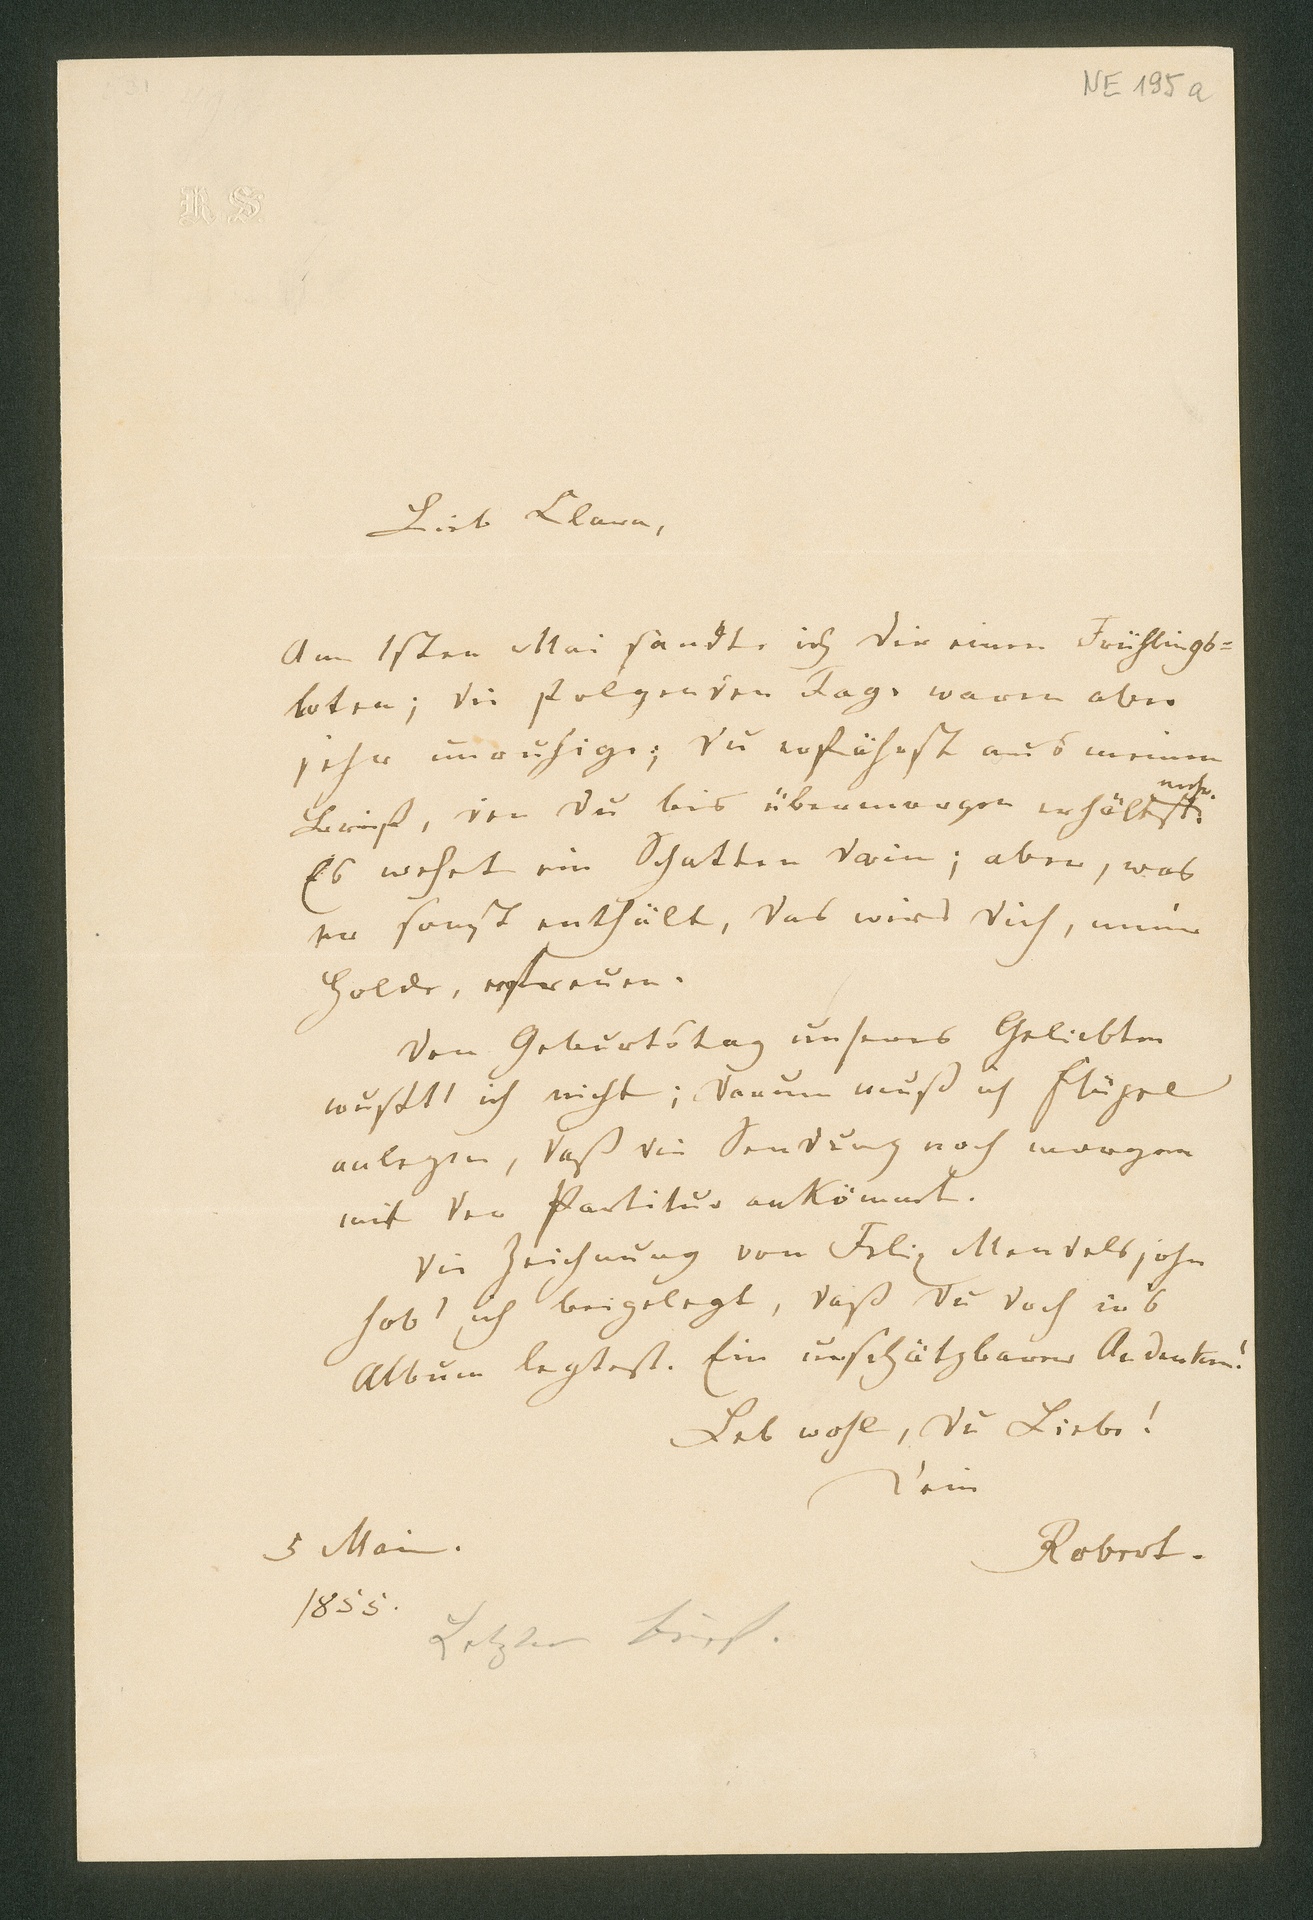 NE 195a
R S
Lieb Clara,
Am 1sten Mai sandte ich Dir einen Frühlings=
boten; die folgenden Tage waren aber
sehr unruhige; Du erfährst aus meinem
mehr.
Brief, den Du bis übermorgen erhältst.
Es wehet ein Schatten darin; aber, was
er sonst enthält, das wird Dich, meine
Holde, erfreuen.
Den Geburtstag unseres Geliebten
wußt' ich nicht; darum muß ich Flügel
anlegen, daß die Sendung noch morgen
mit der Partitur ankömmt.
Die Zeichnung von Felix Mendelssohn
hab' ich beigelegt, daß Du doch in's
Album legtest. Ein unschätzbares Andenken!
Leb wohl, Du Liebe!
Dein
5 Mai.
Robert.
1855.
Letzter Brief.